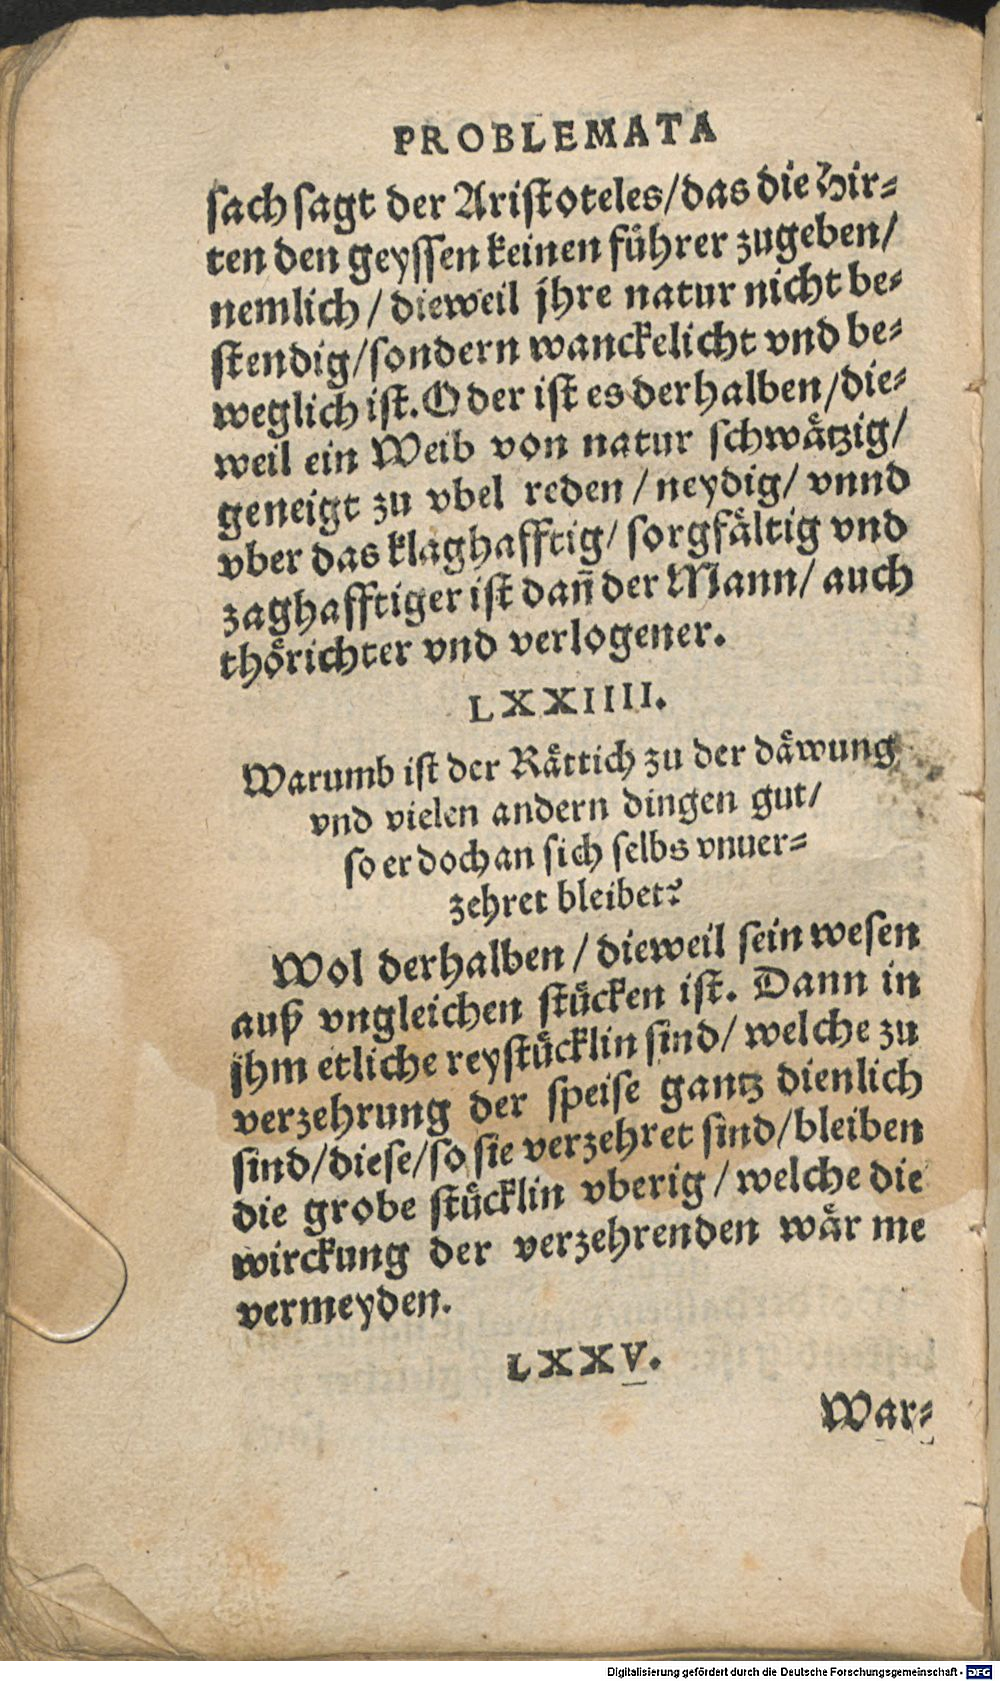 PROBLEMATA
sach sagt der Aristoteles/das die Hir⸗
ten den geyssen keinen fuͤhrer zugeben/
nemlich / dieweil jhre natur nicht be⸗
stendig/sondern wanckelicht vnd be⸗
weglich ist. Oder ist es derhalben/die⸗
weil ein Weib von natur schwaͤtzig/
geneigt zu vbel reden / neydig/ vnnd
vber das klaghafftig/ sorgfaͤltig vnd
zaghafftiger ist dañ der Mann/ auch
thoͤrichter vnd verlogener.
LXXIIII.
Warumb ist der Raͤttich zu der daͤwung
vnd vielen andern dingen gut/
so er doch an sich selbs vnuer⸗
zehret bleibet?
Wol derhalben / dieweil sein wesen
auß vngleichen stuͤcken ist. Dann in
jhm etliche reystuͤcklin sind/ welche zu
verzehrung der speise gantz dienlich
sind/diese/so sie verzehret sind/bleiben
die grobe stuͤcklin vberig / welche die
wirckung der verzehrenden waͤr me
vermeyden.
LXXV.
War⸗
Digitalisierung gefördert durch die Deutsche Forschungsgemeinschaft - DFG